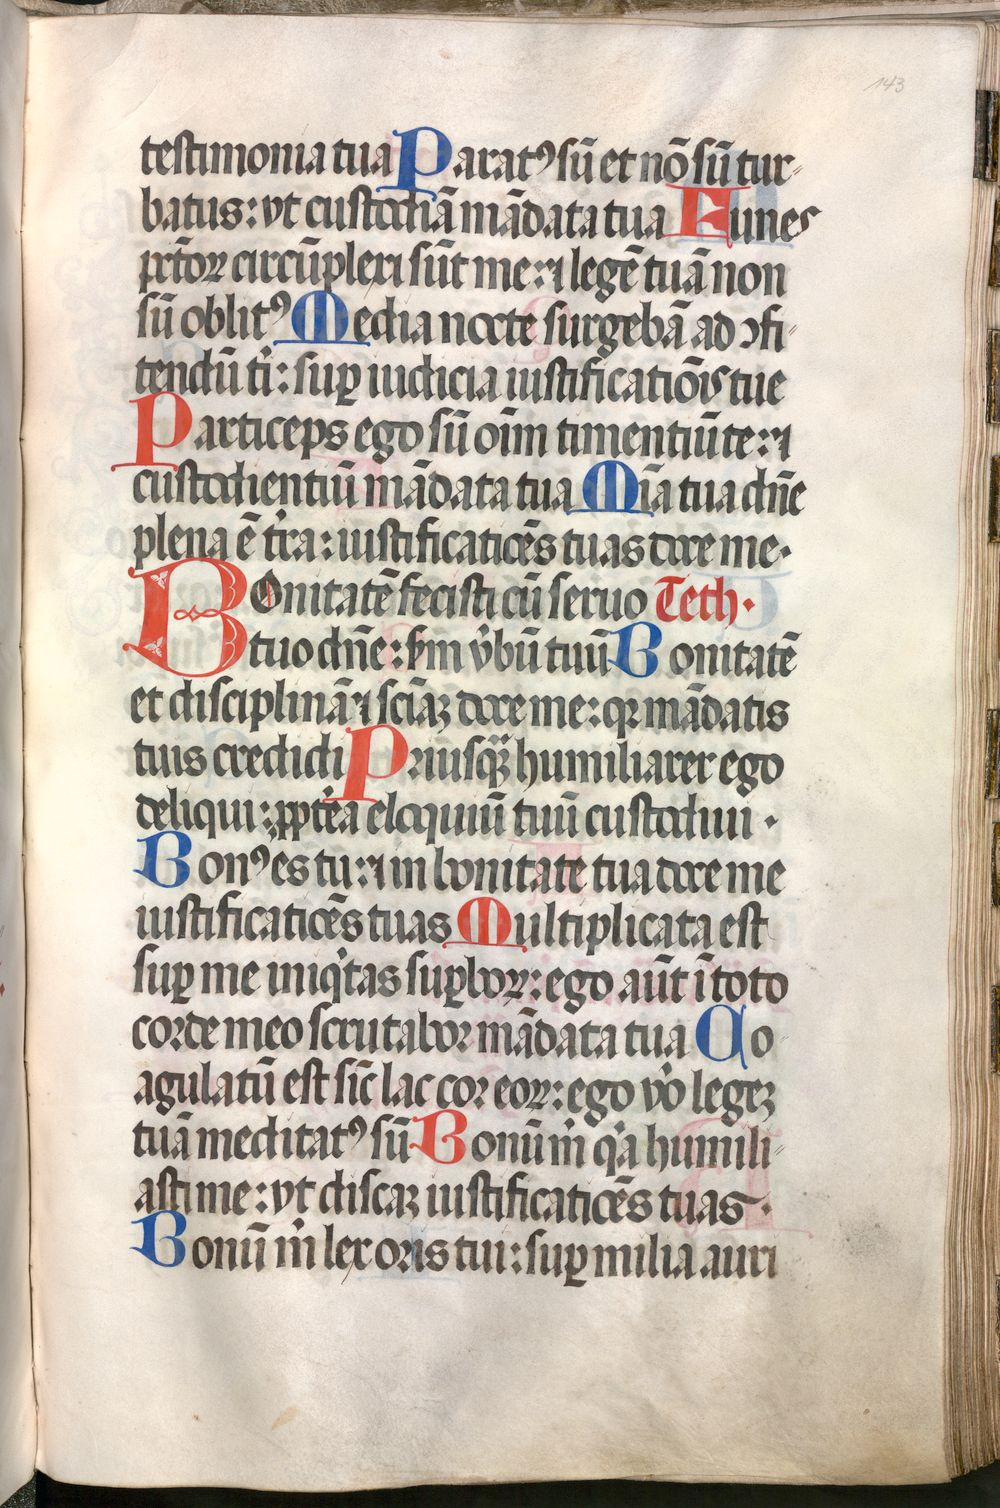 143
testimonia tua Paratꝰ sū et nō sū tur-
batus: vt custodiā mādata tua Funes
pctōꝝ circūplexi sūt me: ⁊ legē tuā non
sū oblitꝰ Media nocte surgebā ad ↄfi-
tendū ti: suꝑ iudicia iustificatiōis tue
Particeps ego sū oīm timentiū te: ⁊
custodientiū mādata tua Mīa tua dn̄e
plena ē t̓ra: iustificatiōēs tuas doce me.
Bonitatē fecisti cū seruo Teth.
tuo dn̄e: scd̄m v̓bū tuū Bonitatē
et disciplinā ⁊ sciāꝫ doce me: qꝛ mādatis
tuis credidi Priusqꝫ humiliarer ego
deliqui: ꝓpt̓ea eloquiū tuū custodiui .
Bonꝰ es tu: ⁊ in bonitate tua doce me
iustificatiōēs tuas Multiplicata est
suꝑ me iniqͥtas suꝑboꝝ: ego aūt ī toto
corde meo scrutabor mādata tua Co
agulatū est sic̄ lac cor eoꝝ: ego v̓o legeꝫ
tuā meditatꝰ sū Bonū m̓ qͥa humili-
asti me: vt discaꝫ iustificatiōēs tuas .
Bonū m̓ lex oris tui: suꝑ milia auri